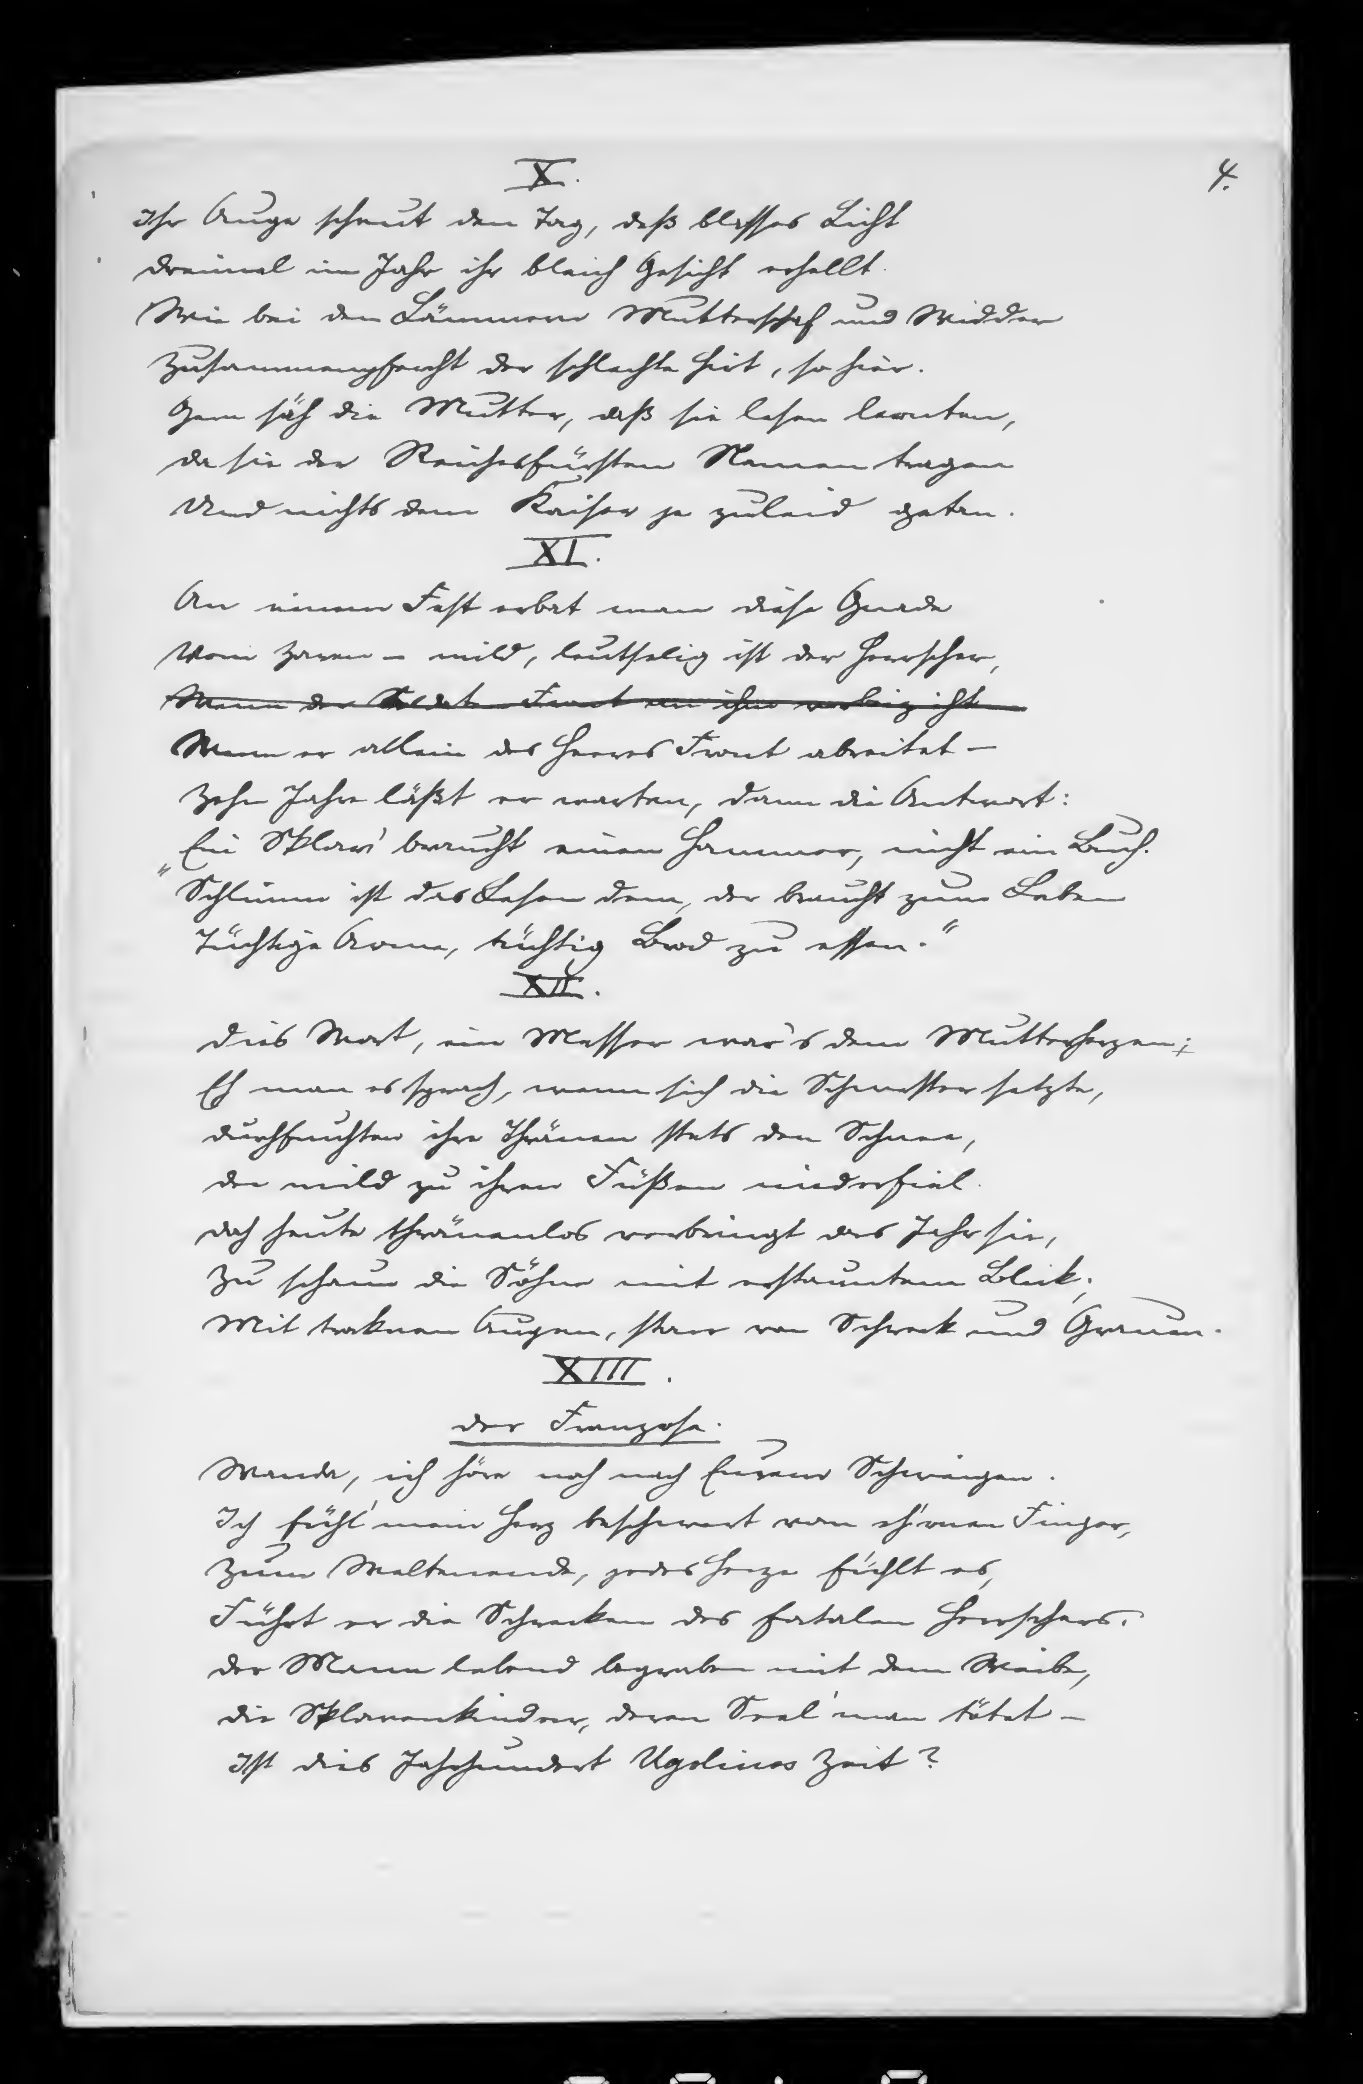 4.
X.
Ihr Auge scheut den Tag, deß blasses Licht
dreimal im Jahr ihr bleich Gesicht erhellt.
Wie bei den Lämmern Mutterschaf und Widder
Zusammenpfercht der schlechte Hirt, so hier.
Gern säh die Mutter, daß sie lesen lernten,
da sie der Reichesfürsten Namen tragen
Und nichts dem Kaiser je zuleid getan.
XI.
An einem Fest erbat man diese Gnade
Vom Zaren – mild, leutselig ist der Herrscher,
Wenn der Soldaten Front an ihm vorbeizieht
Wenn er allein des Heeres Front abreitet –
Zehn Jahre läßt er warten, dann die Antwort:
„Ein Sklav' braucht einen Hammer, nicht ein Buch.
Schlimm ist das Lesen dem, der braucht zum Leben
Tüchtige Arme, tüchtig Brod zu essen."
XII.
Dies Wort, ein Messer war's dem Mutterherzen;
Eh man es sprach, wenn sich die Schwester setzte,
durchfeuchten ihre Thränen stets den Schnee,
der mild zu ihren Füßen niederfiel.
doch heute thränenlos verbringt das Jahr sie,
Zu schaun die Söhne mit erstauntem Blick,
Mit troknen Augen, starr von Schreck und Grauen.
XIII.
der Franzose.
Wanda, ich höre noch nach Eurem Schweigen.
Ich fühl' mein Herz beschwert vom eh'rnen Finger,
Zum Weltenende, jedes Herze fühlt es,
Führt er die Schrecken des fatalen Herrschers.
der Mann lebend begraben mit dem Weibe,
die Sklavenkinder, deren Seel' man tötet –
Ist dies Jahrhundert Ugolinos Zeit?